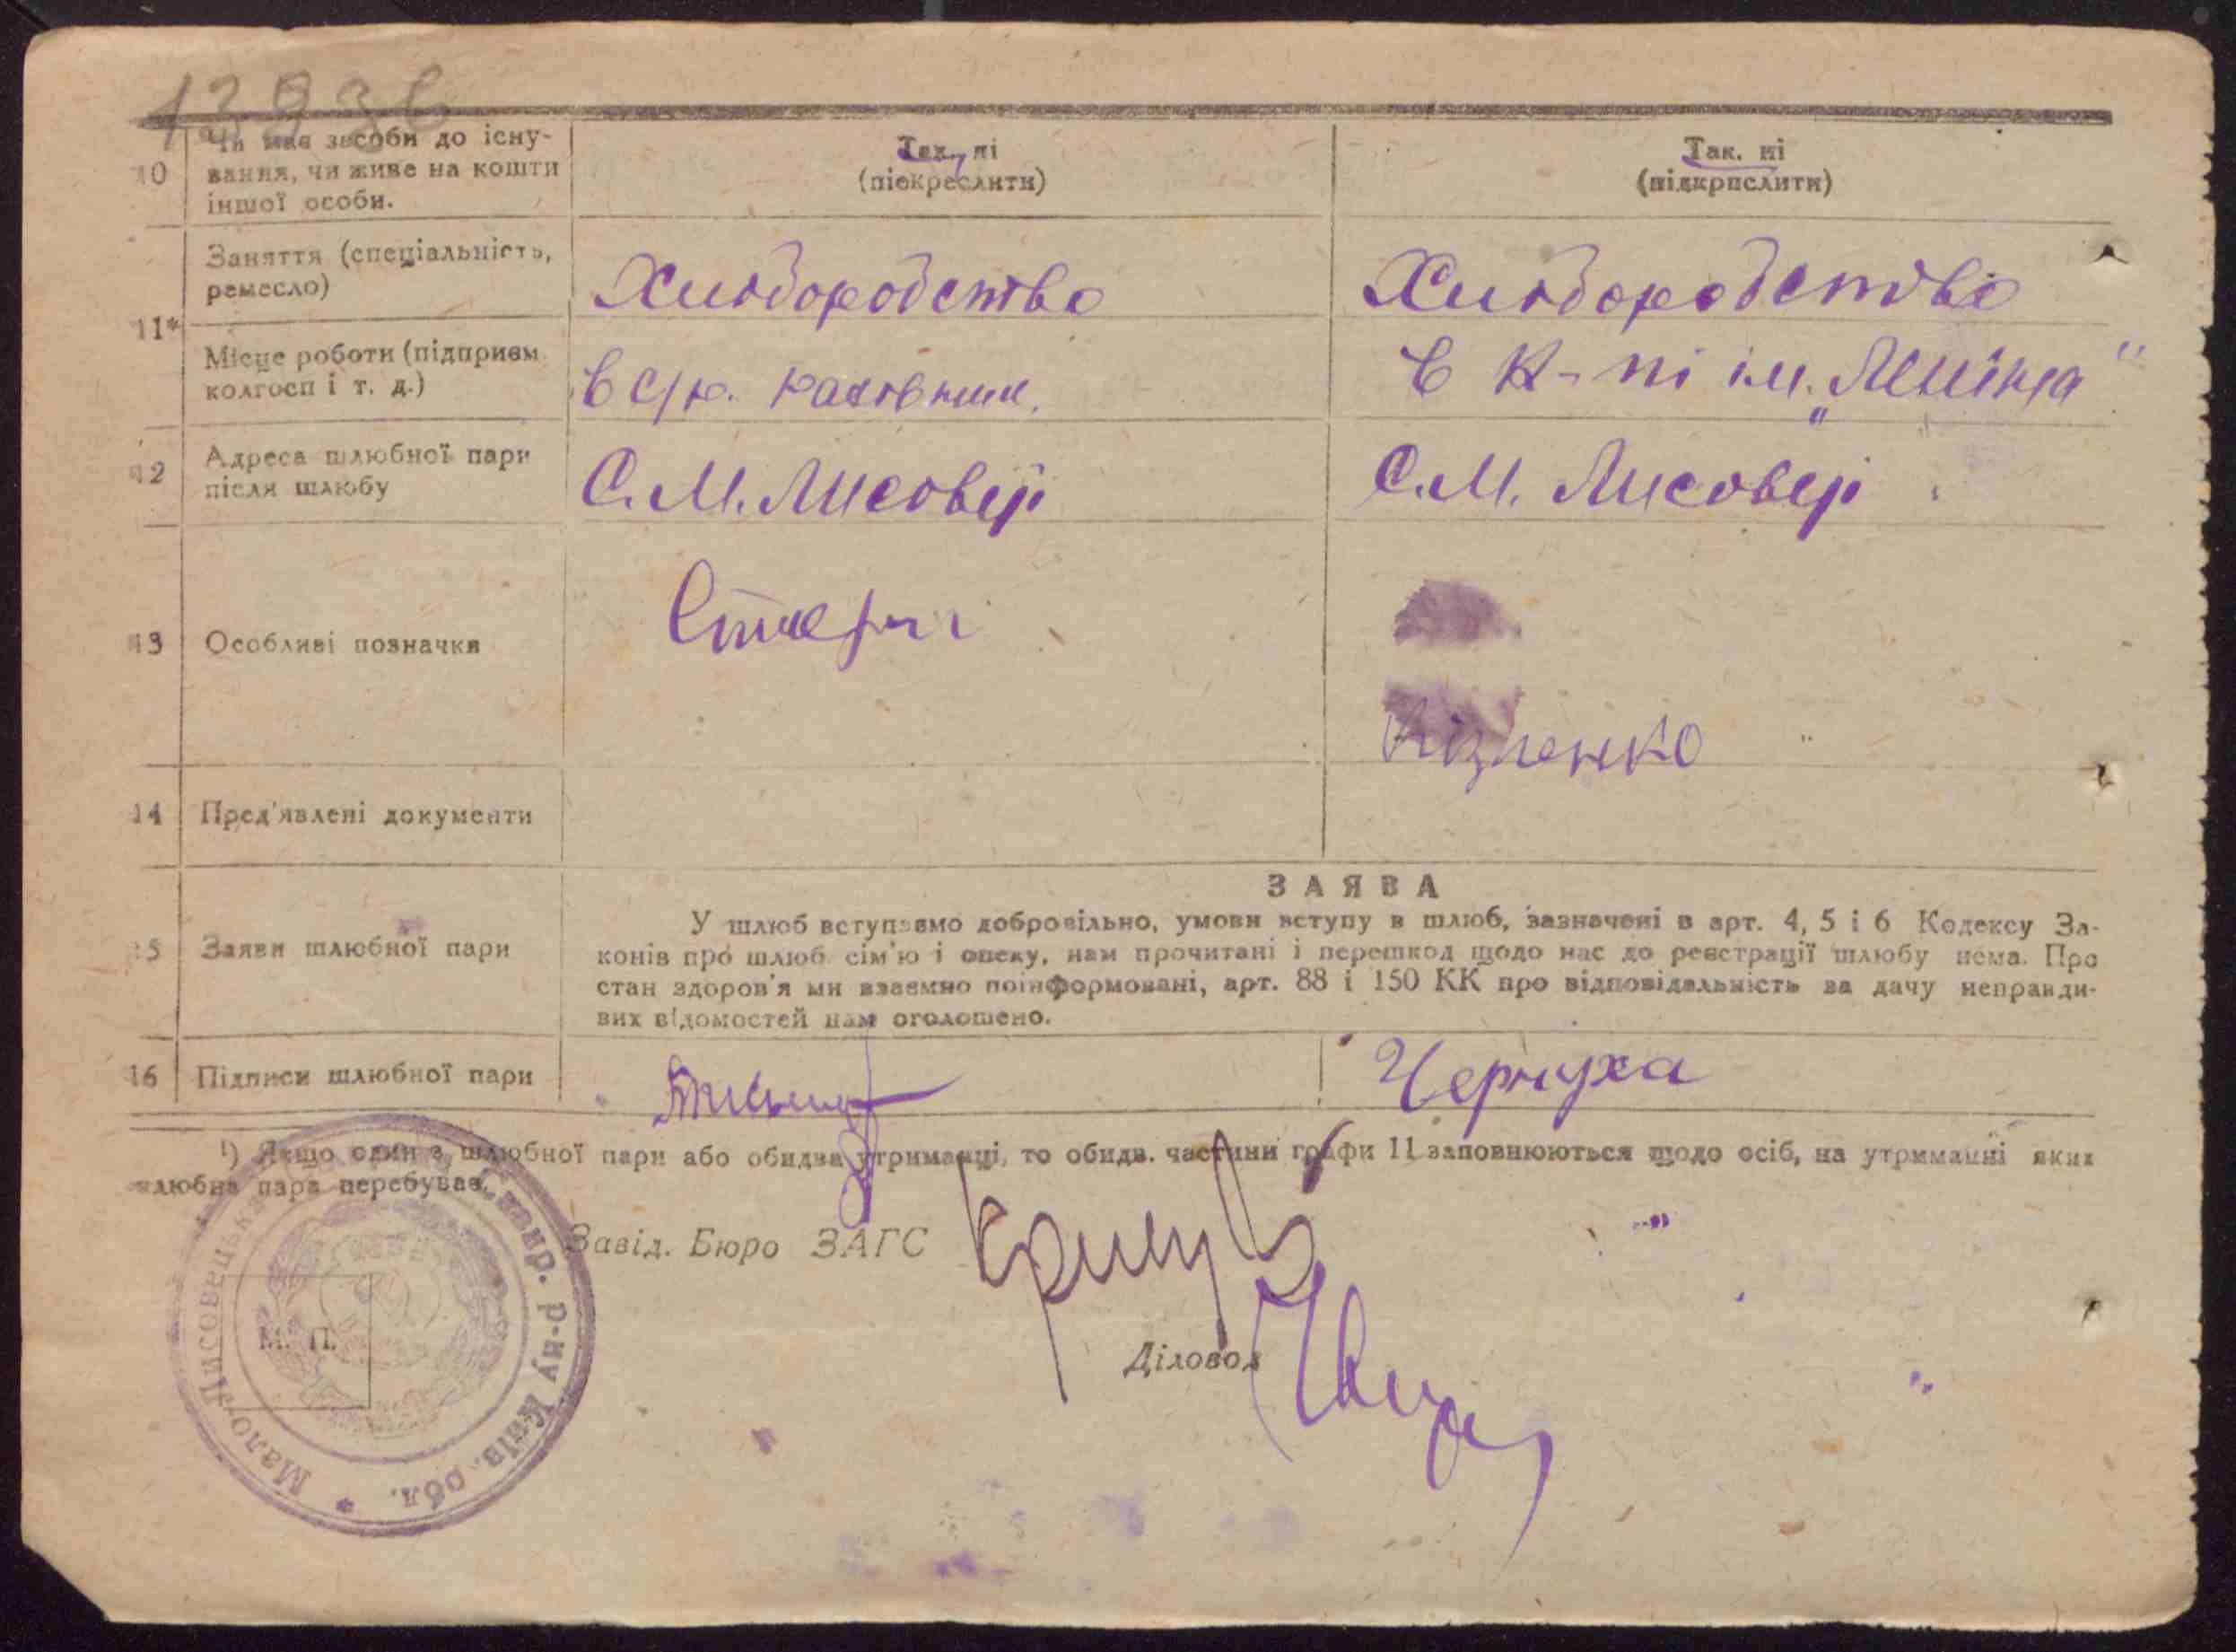 10 Чи має засоби до існу-
вання, чи живе на кошти
іншої особи.
Так, ні
(підкреслити)
Так. ні
(підкрпслити)
11* Заняття (спеціальність,
ремесло)
Хліборобство
Хліборобство
Місце роботи (підприєм.
колгосп і т. д.)
в
в К-пі ім. „Леніна"
12 Адреса шлюбної пари
після шлюбу
С. М. Лисовеці
С. М. Лисовеці
13 Особливі позначки
14 Пред'явлені документи
15 Заяви шлюбної пари
ЗАЯВА
У шлюб вступаємо добровільно, умови вступу в шлюб, зазначені в арт. 4, 5 і 6 Кодексу За-
конів про шлюб сім'ю і опеку, нам прочитані і перешкод щодо нас до реєстрації шлюбу нема. Про
стан здоров'я ми взаємно поінформовані, арт. 88 і 150 КК про відповідальність за дачу неправди-
вих відомостей нам оголошено.
16 Підписи шлюбної пари
Чернуха
¹) Якщо один з шлюбної пари або обидва утриманці, то обидв. частини графи 11 заповнюються щодо осіб, на утриманні яких
шлюбна пара перебуває.
Завід. Бюро ЗАГС
Діловод
М. П.
Мало-Лисовецька р-ну Київ. обл. *